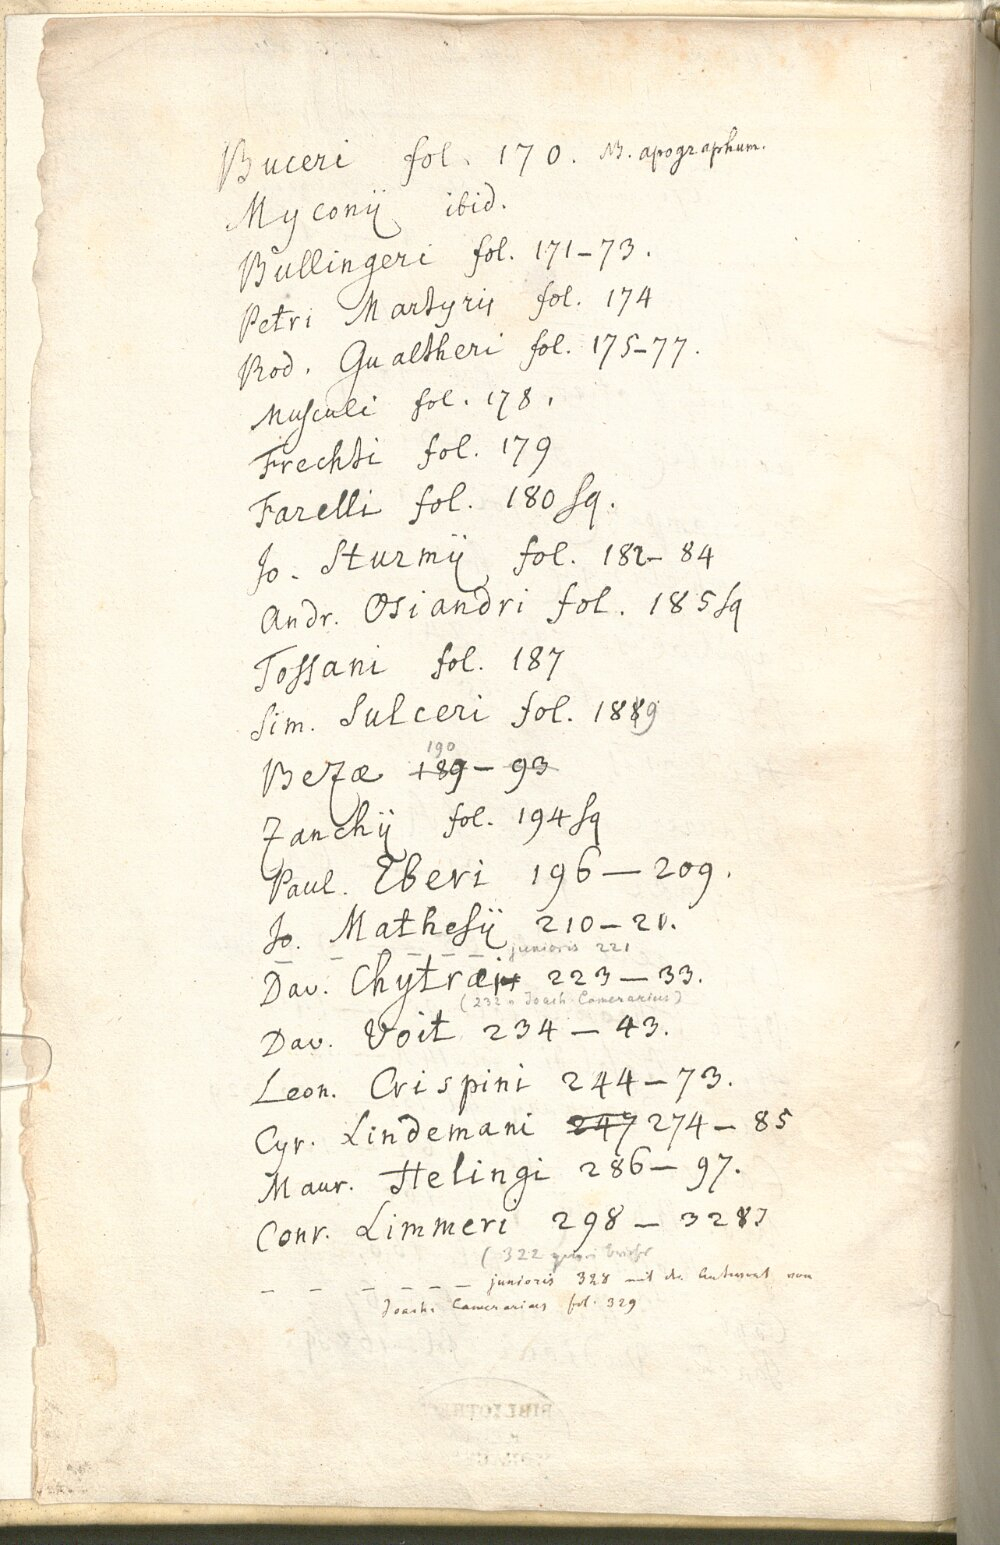 Buceri fol. 170. NB. apographum.
Myconij ibid.
Bullingeri fol. 171-73.
Petri Martyris fol. 174
Rod. Gualtheri fol. 175-77.
Musculi fol. 178.
Frechti fol. 179
Farelli fol. 180 sq.
Jo. Sturmij fol. 182-84
Andr. Osiandri fol. 185 sq
Tossani fol. 187
Sim. Sulceri fol. 1889
190
Bezæ 189-93
Zanchij fol. 194 sq
Paul. Eberi 196-209.
Jo. Mathesij 210-21.
- - - - - junioris 221
Dav. Chytræi 223-33.
(232 n Joach. Camerarius)
Dav. Voit 234-43.
Leon. Crispini 244-73.
Cyr. Lindemani 247 274-85
Maur. Helingi 286-97.
Conr. Limmeri 298-327
(322 Briefe
- - - - - junioris 328 mit der Antwort von
Joach. Camerarius fol. 329
BIBLIOTH